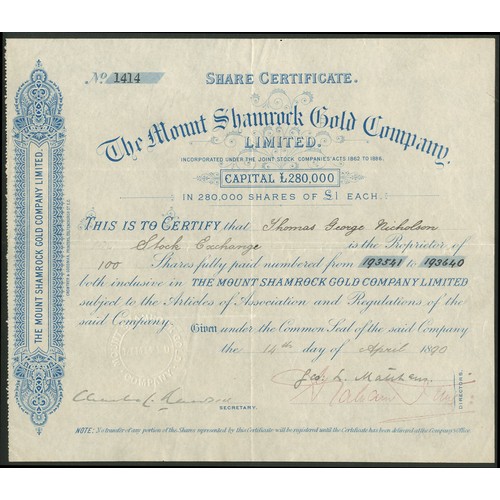 No. 1414
SHARE CERTIFICATE.
The Mount Shamrock Gold Company,
LIMITED.
INCORPORATED UNDER THE JOINT STOCK COMPANIES' ACTS 1862 TO 1886.
CAPITAL £280,000
IN 280,000 SHARES OF £1 EACH.
THIS IS TO CERTIFY that Thomas George Nicholson
Stock Exchange is the Proprietor of
100 Shares fully paid numbered from 193541 to 193640
both inclusive in THE MOUNT SHAMROCK GOLD COMPANY LIMITED
subject to the Articles of Association and Regulations of the
said Company. Given under the Common Seal of the said Company
the 14th day of April 1890
Geo. Matthews
DIRECTORS.
SECRETARY.
NOTE: No transfer of any portion of the Shares represented by this Certificate will be registered until the Certificate has been delivered at the Company's Office.
THE MOUNT SHAMROCK GOLD COMPANY LIMITED.